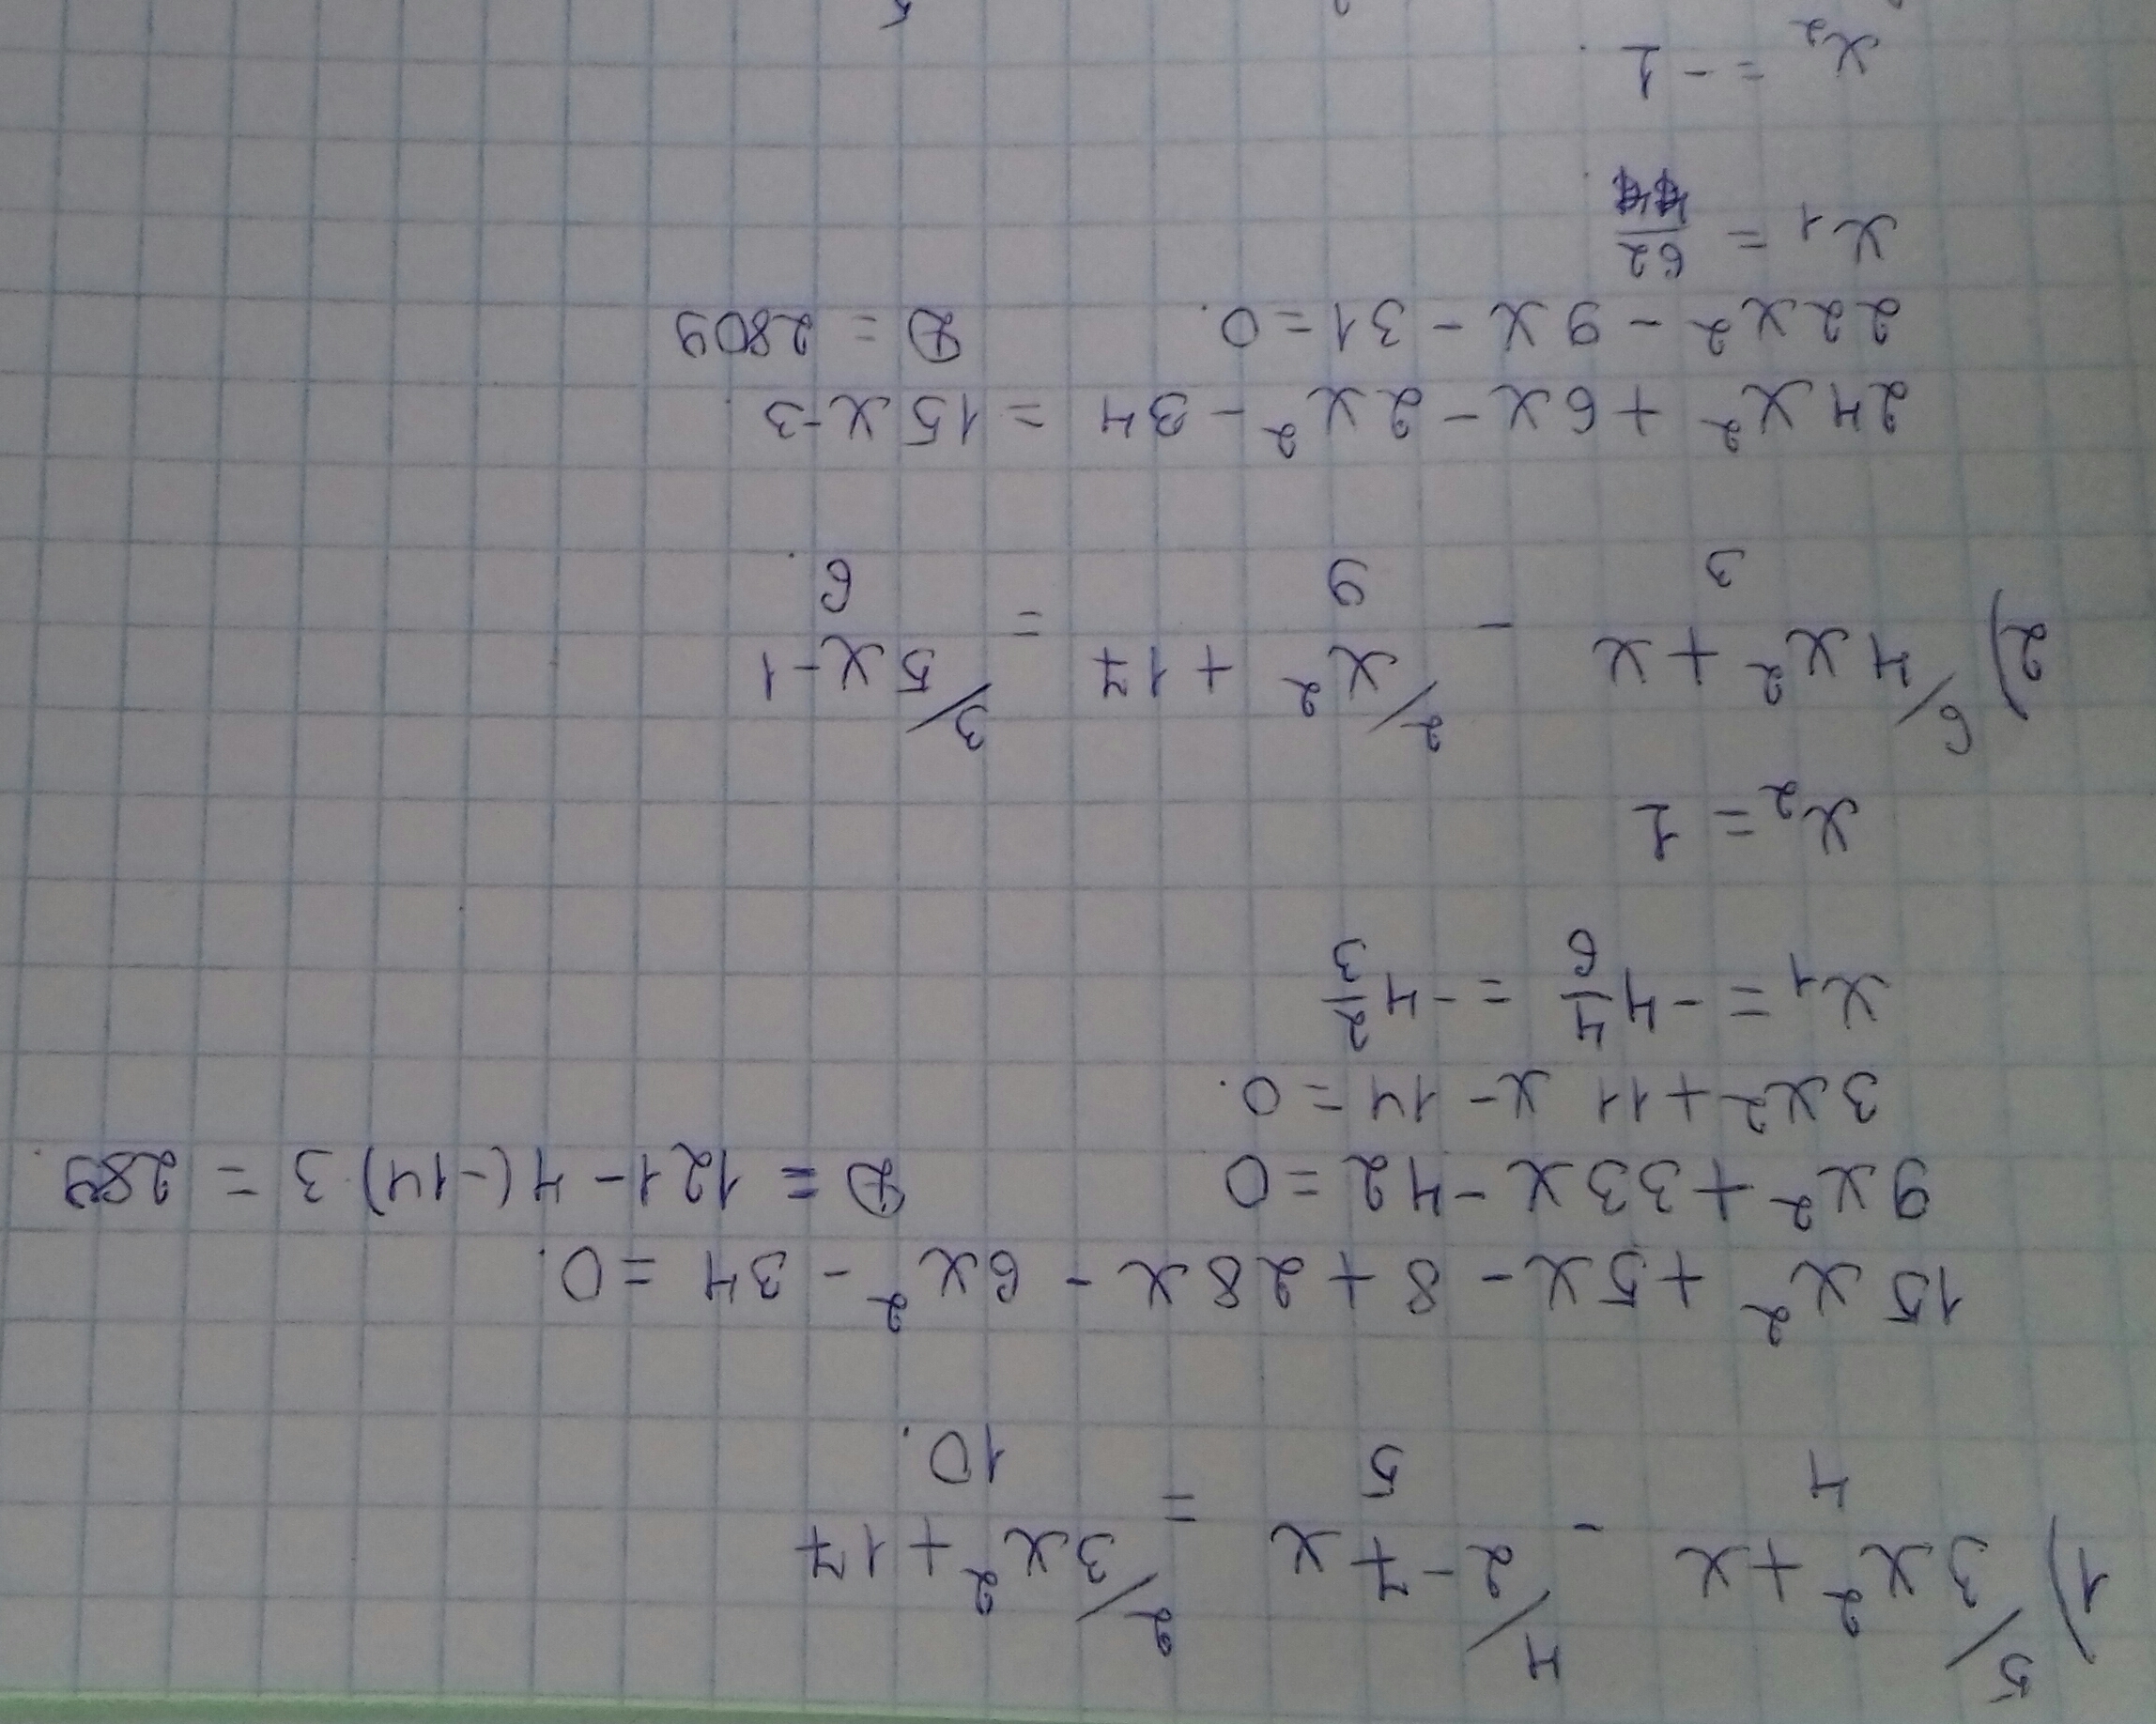 1) 5/ 3x² + x / 4 - 4/ 2 - 7x / 5 = 2/ 3x² + 17 / 10.
15x² + 5x - 8 + 28x - 6x² - 34 = 0.
9x² + 33x - 42 = 0 D = 121 - 4(-14) 3 = 289.
3x² + 11x - 14 = 0.
x₁ = -4 4/6 = -4 2/3
x₂ = 1
2) 6/ 4x² + x / 3 - 2/ x² + 17 / 9 = 3/ 5x - 1 / 6
24x² + 6x - 2x² - 34 = 15x - 3
22x² - 9x - 31 = 0. D = 2809
x₁ = 62/44
x₂ = -1